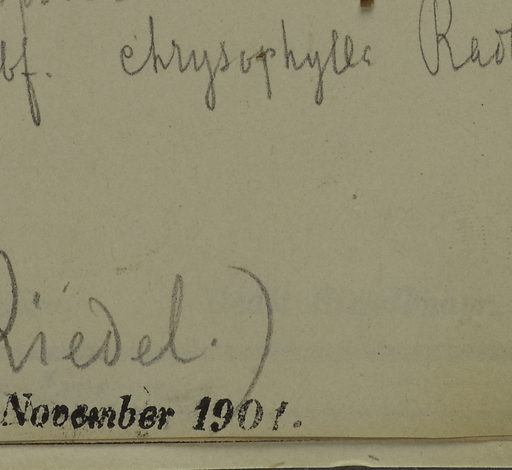 bf. chrysophylla Radl
Riedel.)
November 1901.